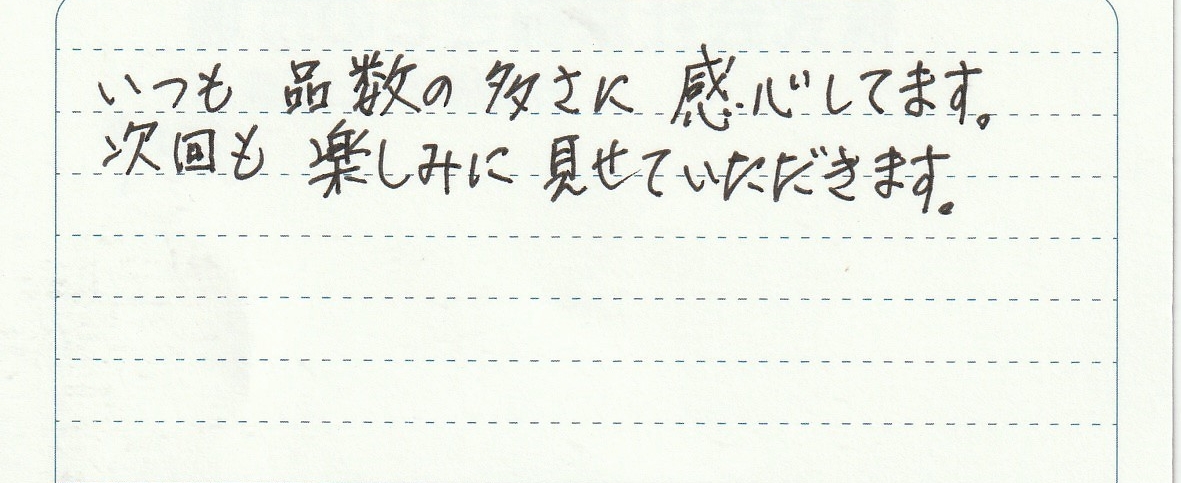 いつも 品数の 多さに 感心してます。
次回も 楽しみに 見せていただきます。